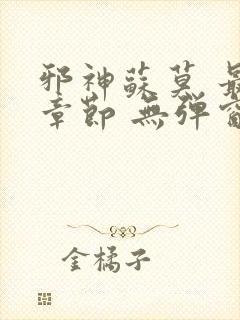 邪神蘇莫 最
章節 無彈窗
金橘子